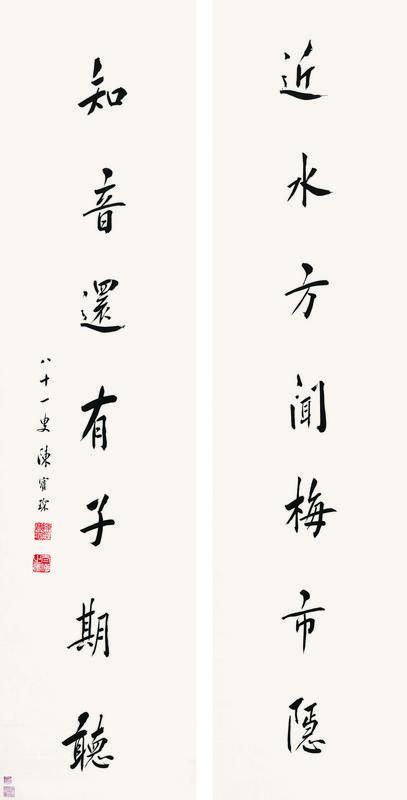 近水方闻梅市隱
知音還有子期聽
八十一叟陳寶琛